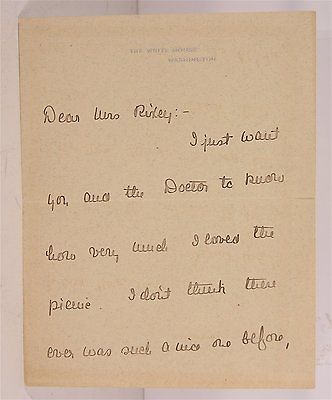 THE WHITE HOUSE
WASHINGTON
Dear Mrs Rixey:-
I just want
you and the Doctor to know
how very much I loved the
picnic. I don't think there
ever was such a nice one before,